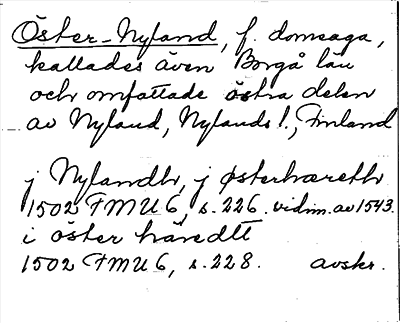 Öster-Nyland, f. domsaga,
kallades även Borgå län
och omfattade östra delen
av Nyland, Nylands l., Finland
j Nylandh, j østerhærethr
1502 FMU 6, s. 226. vidim. av 1543.
i öster häredtt
1502 FMU 6, s. 228. avskr.